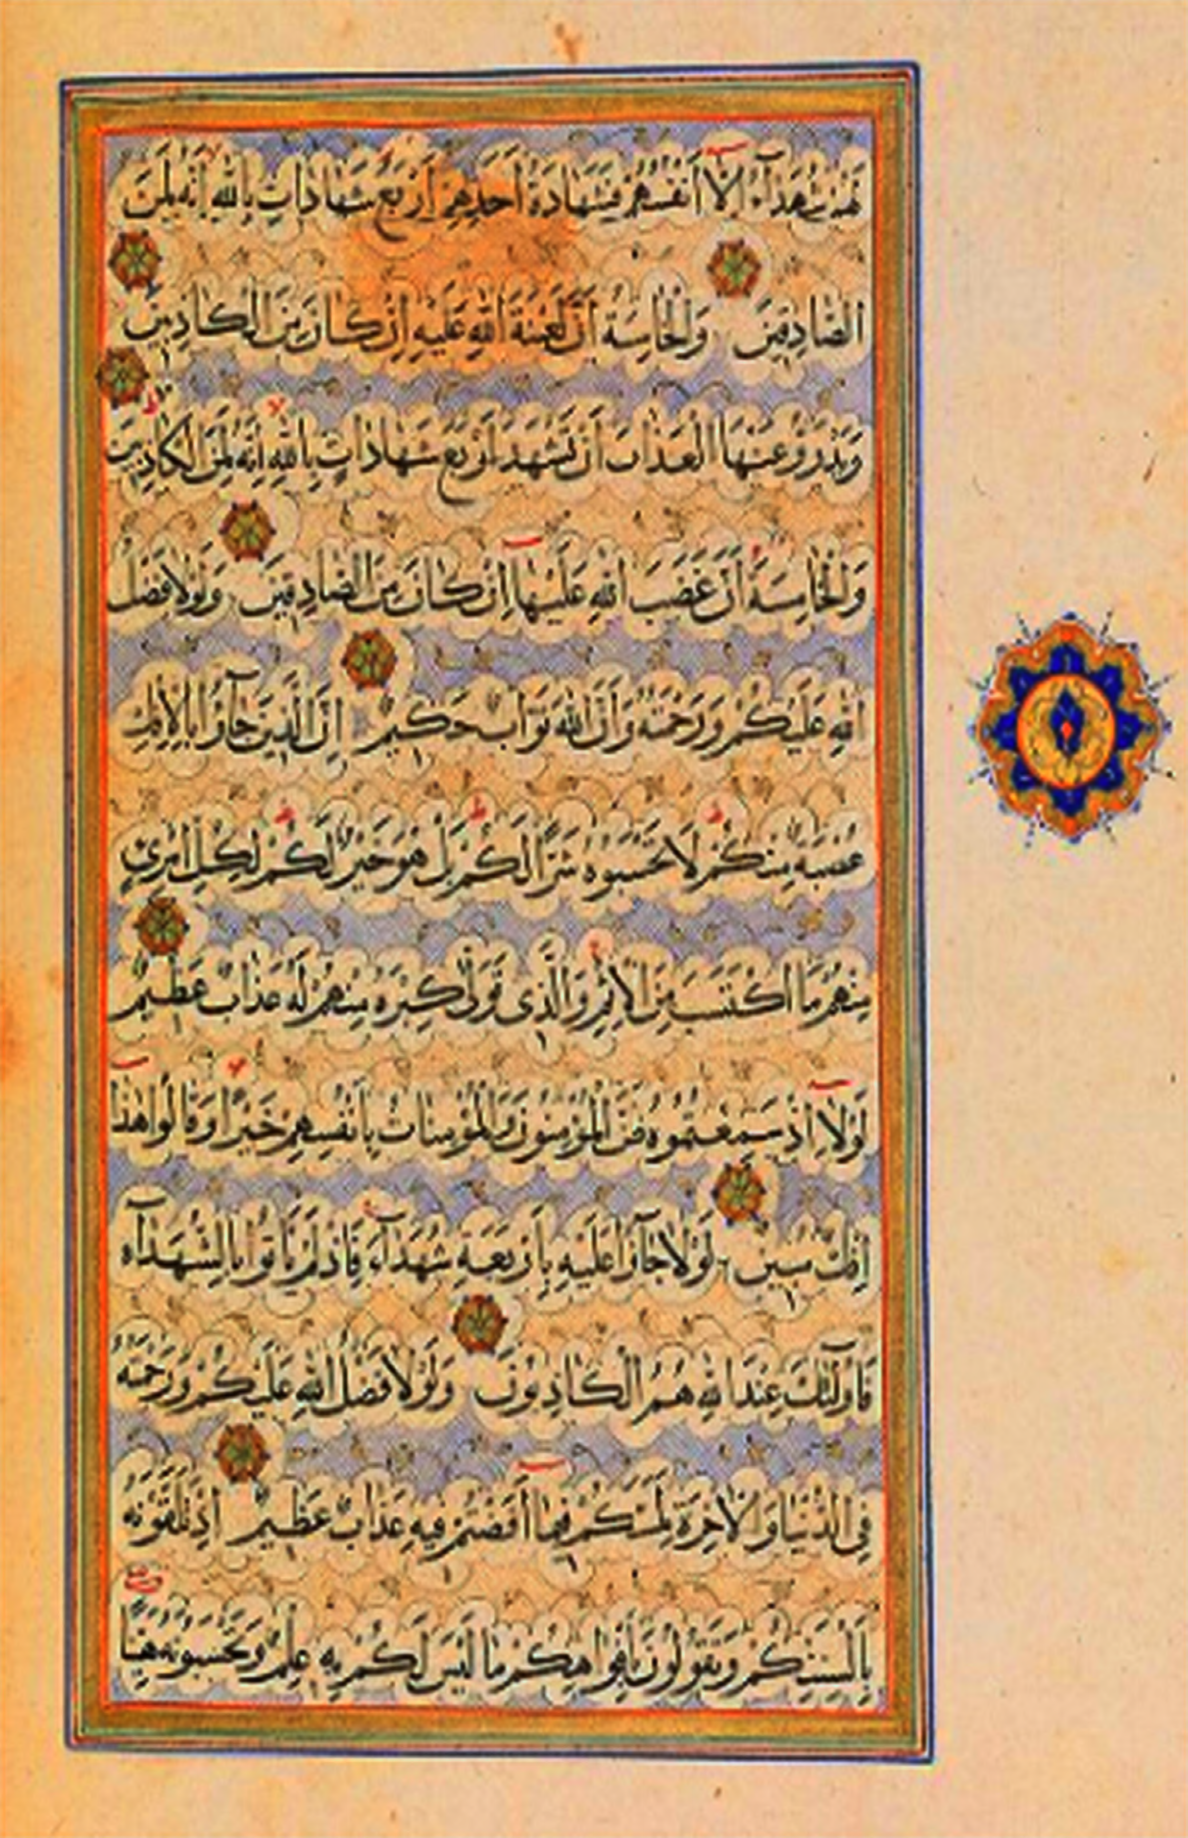 لَهُمْ شُهَدَآءُ اِلَّا اَنْفُسُهُمْ فَشَهَادَةُ اَحَدِهِمْ اَرْبَعُ شَهَادَاتٍ بِاللهِ اِنَّهُ لَمِنَ
الصَّادِقِينَ وَالْخَامِسَةُ اَنَّ لَعْنَةَ اللهِ عَلَيْهِ اِنْ كَانَ مِنَ الْكَاذِبِينَ
وَيَدْرَؤُا عَنْهَا الْعَذَابَ اَنْ تَشْهَدَ اَرْبَعَ شَهَادَاتٍ بِاللهِ اِنَّهُ لَمِنَ الْكَاذِبِينَ
وَالْخَامِسَةَ اَنَّ غَضَبَ اللهِ عَلَيْهَا اِنْ كَانَ مِنَ الصَّادِقِينَ وَلَوْلَا فَضْلُ
اللهِ عَلَيْكُمْ وَرَحْمَتُهُ وَاَنَّ اللهَ تَوَّابٌ حَكِيمٌ اِنَّ الَّذِينَ جَآؤُا بِالْاِفْكِ
عُصْبَةٌ مِنْكُمْ لَا تَحْسَبُوهُ شَرًّا لَكُمْ بَلْ هُوَ خَيْرٌ لَكُمْ لِكُلِّ امْرِئٍ
مِنْهُمْ مَا اكْتَسَبَ مِنَ الْاِثْمِ وَالَّذِى تَوَلّٰى كِبْرَهُ مِنْهُمْ لَهُ عَذَابٌ عَظِيمٌ
لَوْلَا اِذْ سَمِعْتُمُوهُ ظَنَّ الْمُؤْمِنُونَ وَالْمُؤْمِنَاتُ بِاَنْفُسِهِمْ خَيْرًا وَقَالُوا هٰذَا
اِفْكٌ مُبِينٌ لَوْلَا جَآؤُا عَلَيْهِ بِاَرْبَعَةِ شُهَدَآءَ فَاِذْ لَمْ يَاْتُوا بِالشُّهَدَآءِ
فَاُولٰٓئِكَ عِنْدَ اللهِ هُمُ الْكَاذِبُونَ وَلَوْلَا فَضْلُ اللهِ عَلَيْكُمْ وَرَحْمَتُهُ
فِى الدُّنْيَا وَالْاٰخِرَةِ لَمَسَّكُمْ فِيمَا اَفَضْتُمْ فِيهِ عَذَابٌ عَظِيمٌ اِذْ تَلَقَّوْنَهُ
بِاَلْسِنَتِكُمْ وَتَقُولُونَ بِاَفْوَاهِكُمْ مَا لَيْسَ لَكُمْ بِهِ عِلْمٌ وَتَحْسَبُونَهُ هَيِّنًا